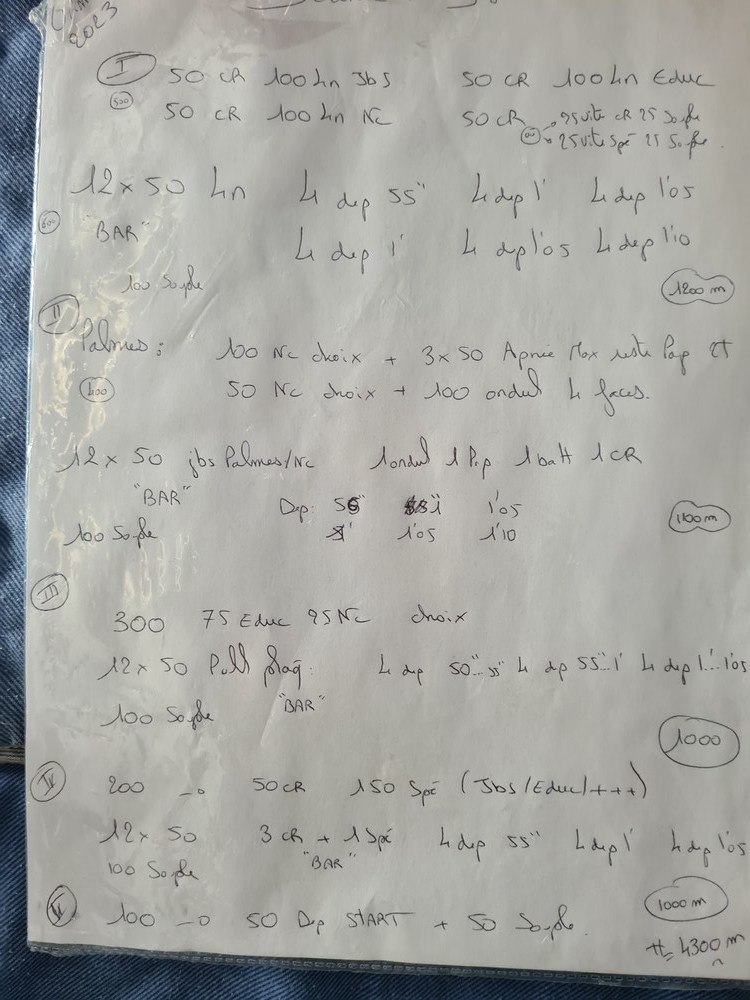 2023
I 50 CR 100 4n Jbs 50 CR 100 4n Educ
500 50 CR 100 4n Nc 50 CR 25 vite CR 25 Souple
ou 25 vite Spé 25 Souple
12 x 50 4n 4 dep 55" 4 dep 1' 4 dep 1'05
600 "BAR" 4 dep 1' 4 dep 1'05 4 dep 1'10
100 Souple 1200 m
II
Palmes : 100 Nc choix + 3 x 50 Apnée Max reste Pap et
400 50 Nc choix + 100 ondul 4 faces.
12 x 50 jbs Palmes/Nc 1 ondul 1 Pap 1 batt 1 CR
"BAR" Dep: 1'05
100 Souple 1' 1'05 1'10 1100 m
III
300 75 Educ 25 Nc choix
12 x 50 Pull plaq: 4 dep 50"..55" 4 dep 55"..1' 4 dep 1'...1'05
100 Souple "BAR"
1000
IV 200 50 CR 150 Spé (Jbs/Educ/+++)
12 x 50 3 CR + 1 Spé 4 dep 55" 4 dep 1' 4 dep 1'05
100 Souple "BAR"
1000 m
V 100 50 Dep START + 50 Souple.
4300 m